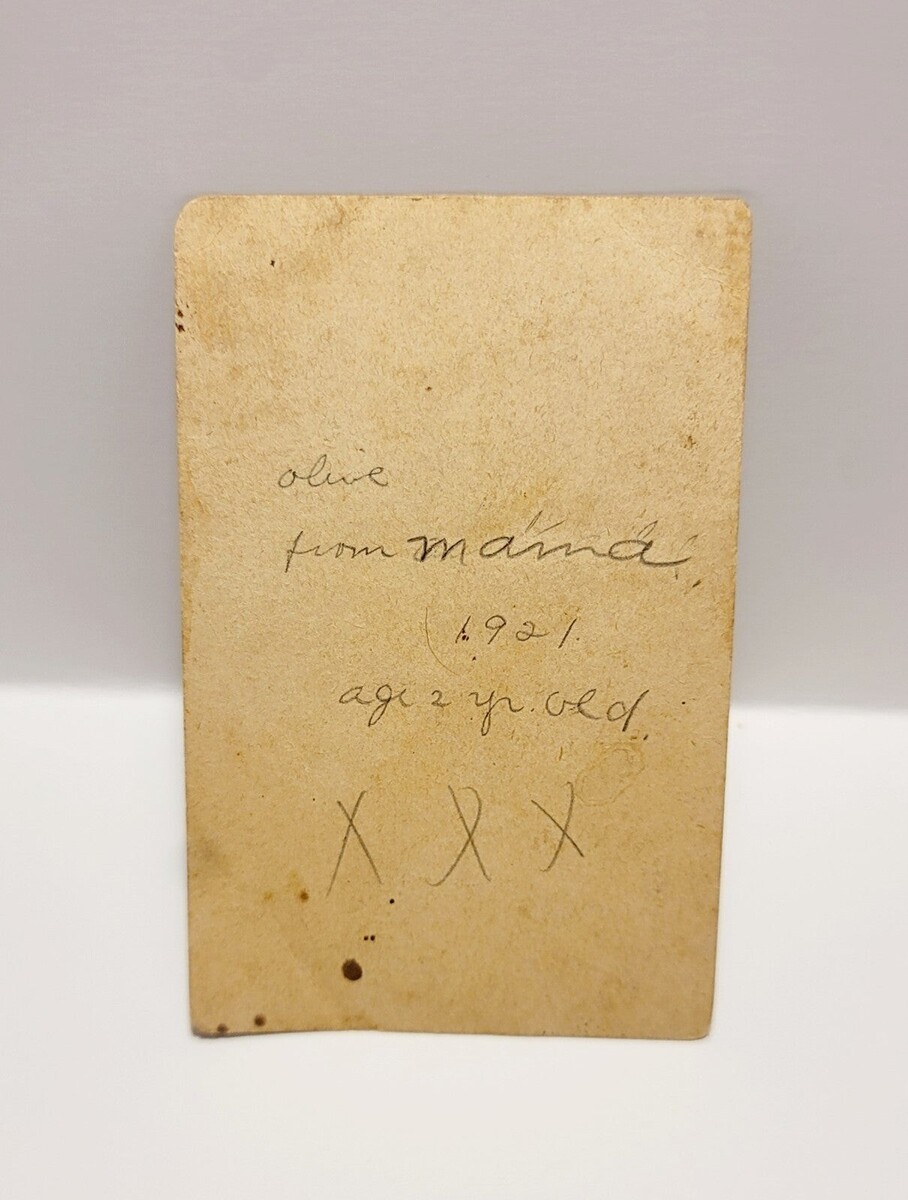 olive
from mama
1921
age 2 yr. old
X X X